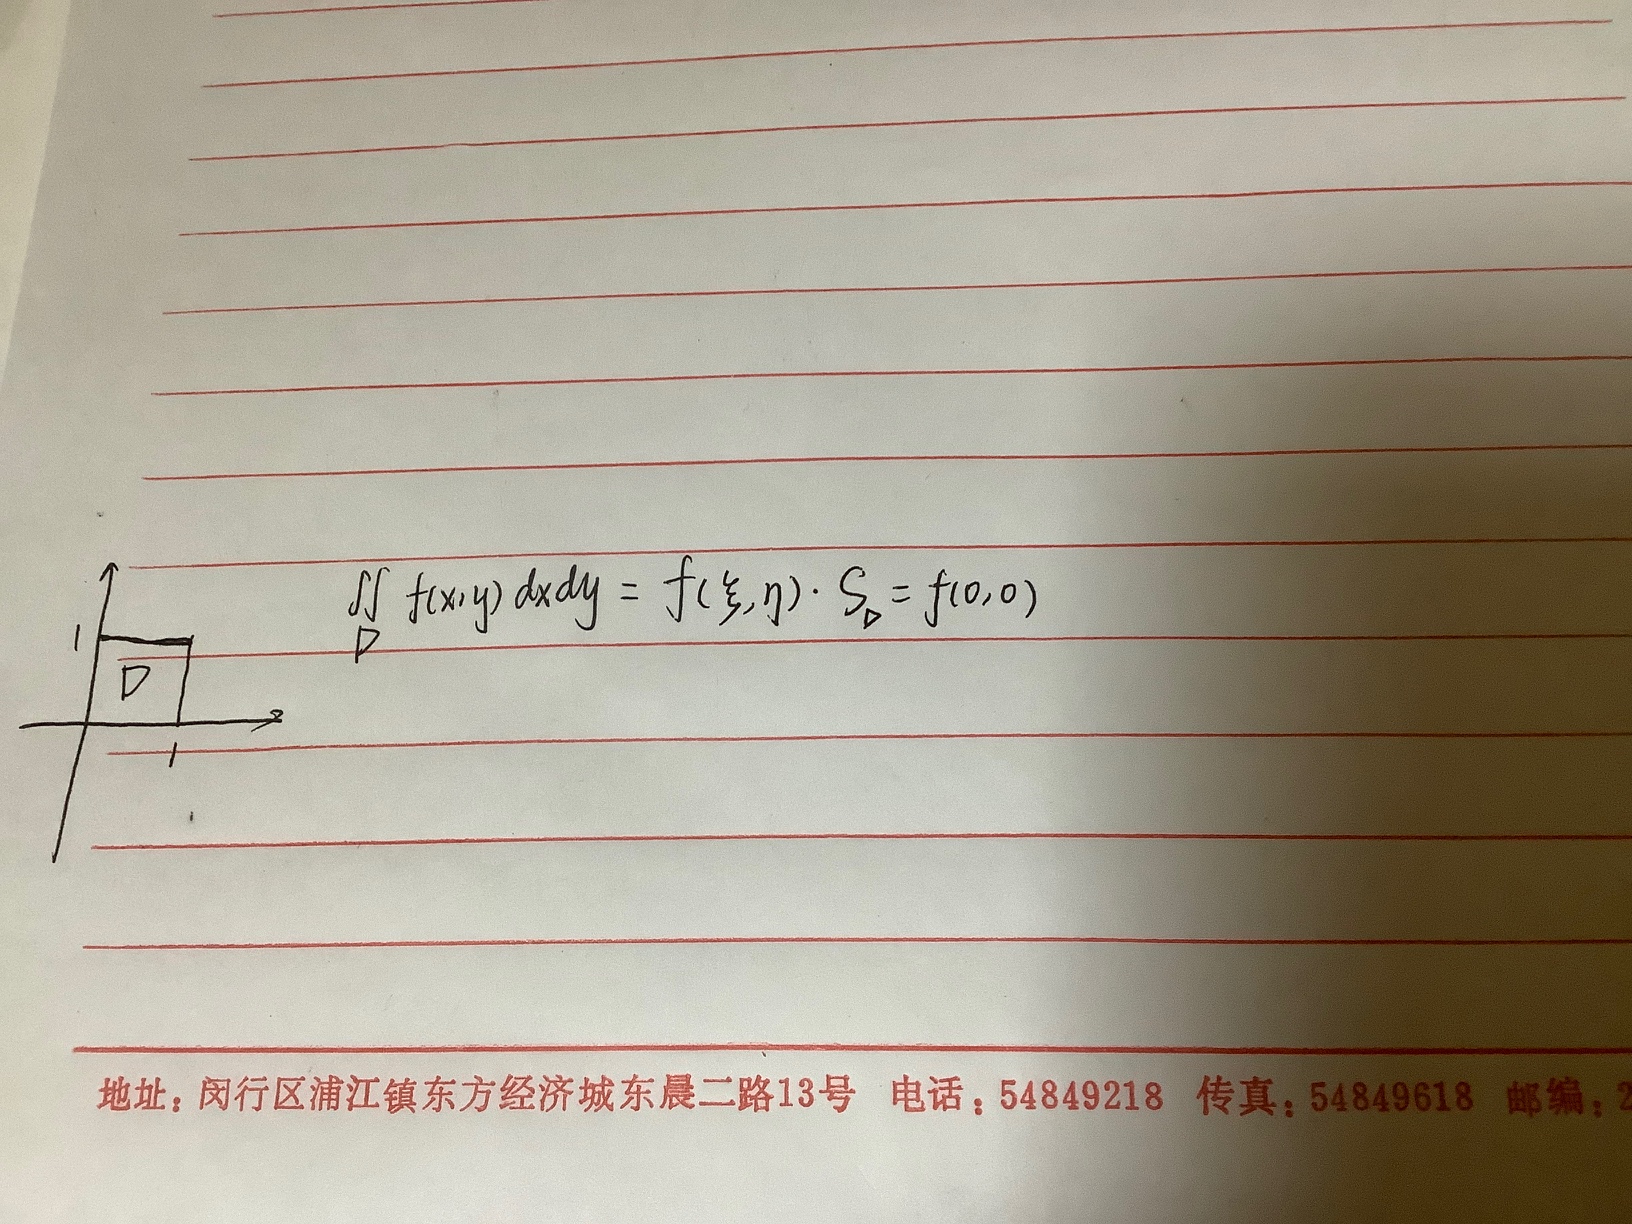 ∬ f(x,y) dxdy = f(ξ,η)·S_D = f(0,0)
D
1
D
1
地址：闵行区浦江镇东方经济城东晨二路13号 电话：54849218 传真：54849618 邮编：2